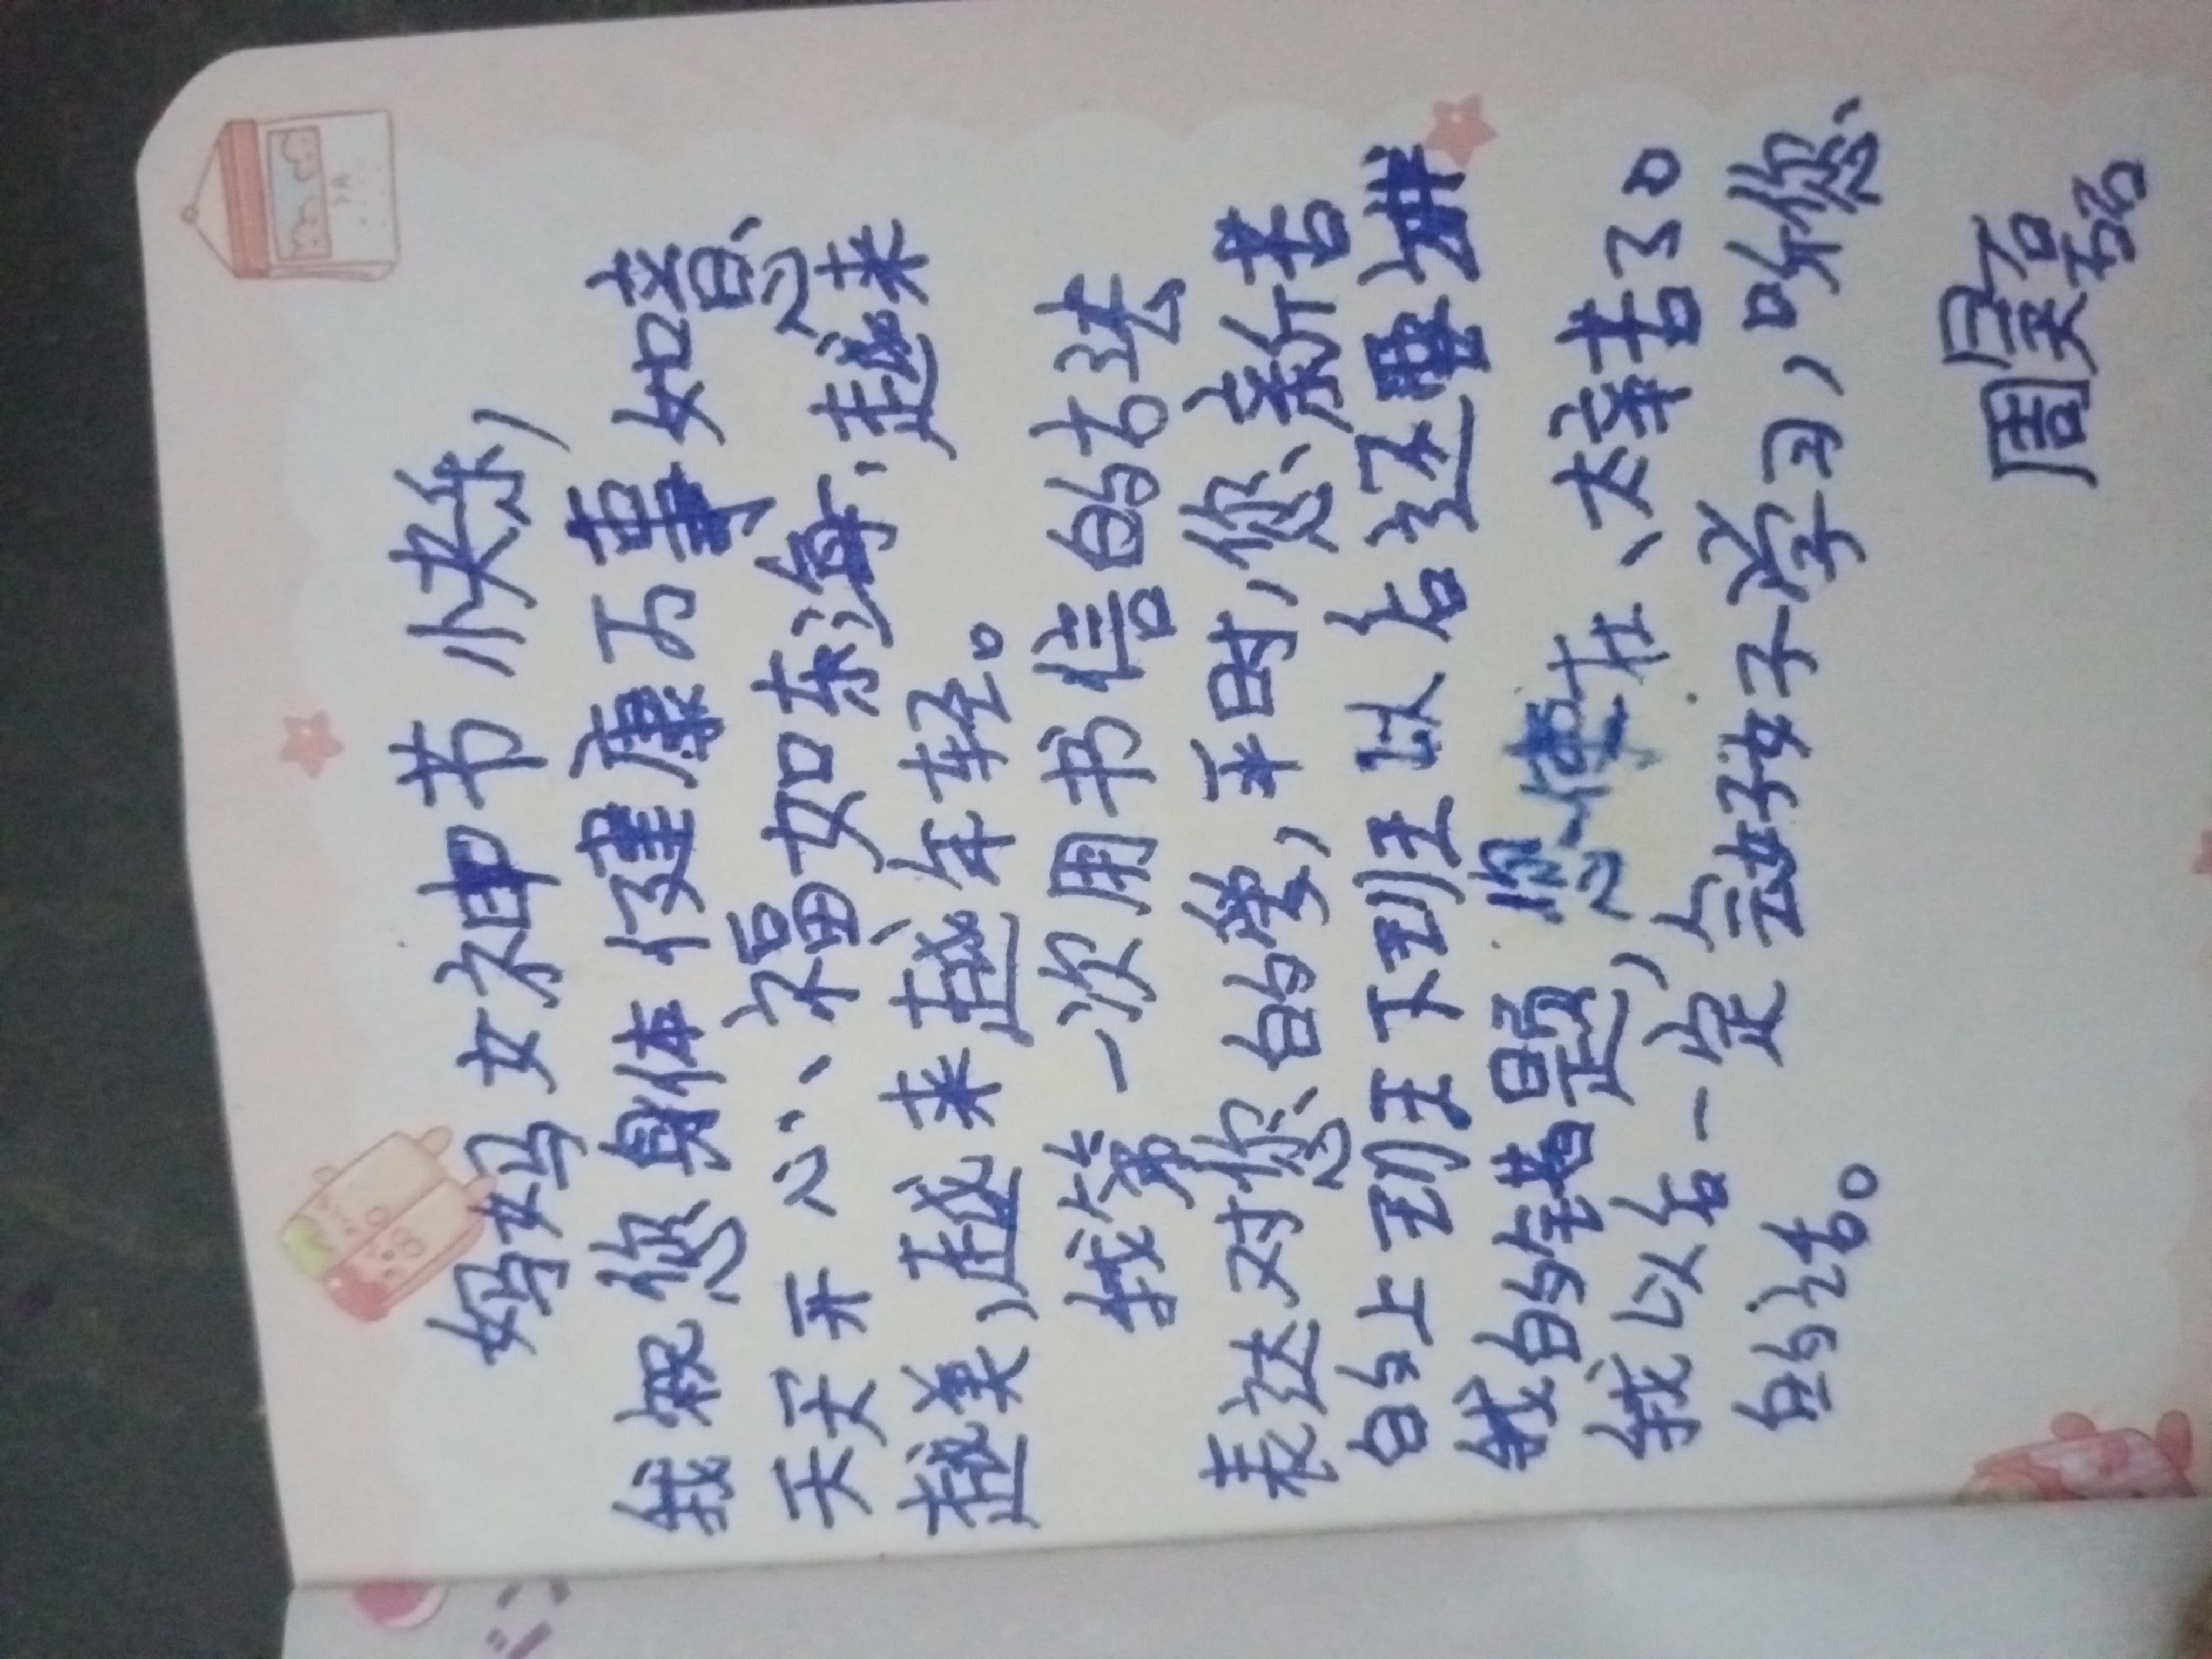 妈妈女神节快乐，
我祝您身体健康万事如意、
天天开心、福如东海、越来
越美，越来越年轻。
我第一次用书信的方法
表达对您的爱，平时，您、辛苦
的上班下班以后还要讲
我的错题，您、实在、太辛苦了。
我以后一定会好好学习，听您、
的话。
周